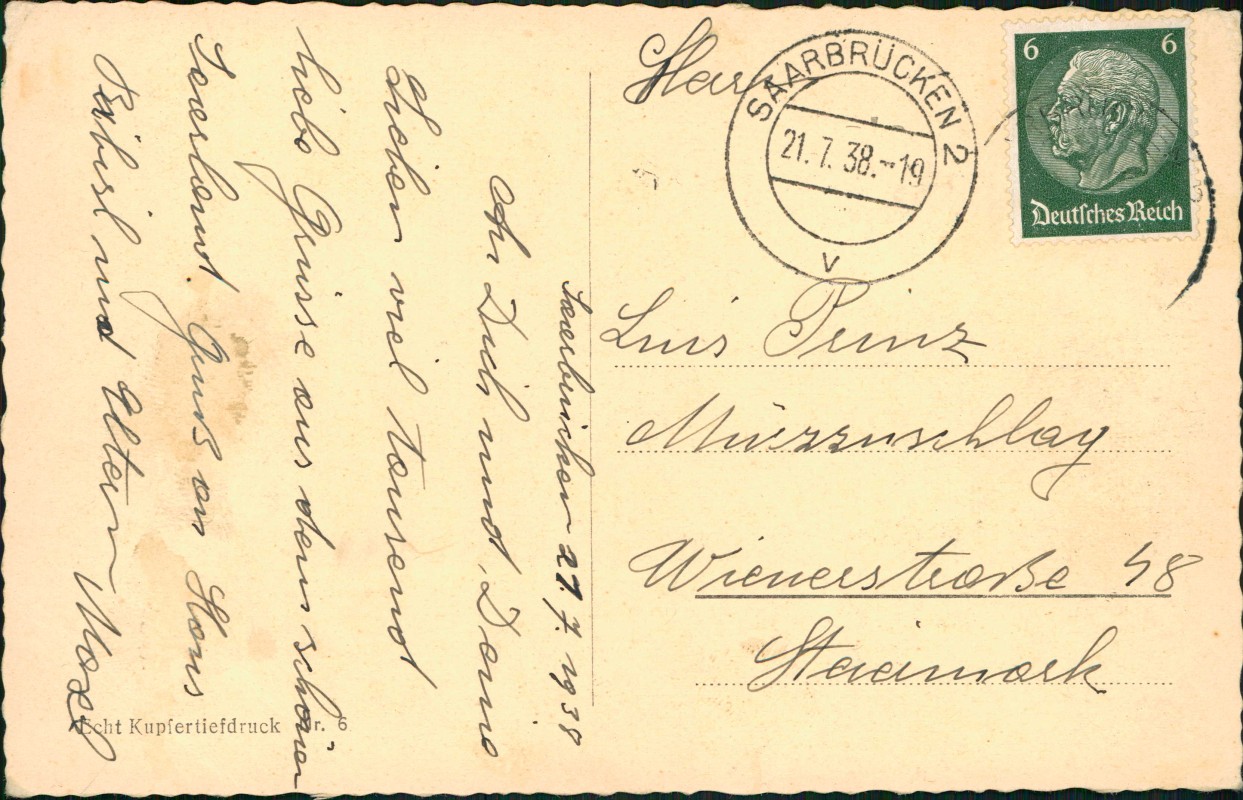 Saarbrücken 21.7.1938
An Dich und Deine
Lieben viel tausend
liebe Grüsse aus dem schönen
Saarland. Gruß an Hans
und Eltern
SAARBRÜCKEN 2
21.7.38.-19
v
6 6
Deutsches Reich
Luis Prinz
Mürzzuschlag
Wienerstraße 48
Steiermark
Echt Kupfertiefdruck Nr. 6